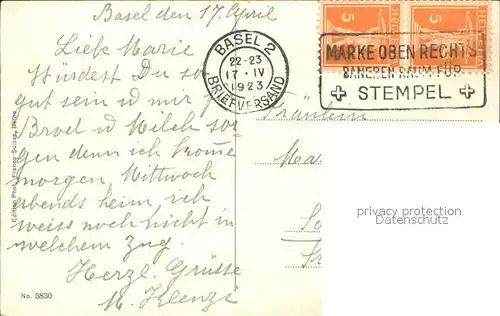 Basel den 17. April
Liebe Marie
Würdest Du so
gut sein u mir f.
Brot u Milch sor
gen denn ich komme
morgen, Mittwoch
abends heim, ich
weiss noch nicht in
welchem Zug.
Herzl. Grüsse
M. Kenzi
No. 5830
BASEL 2
22-23
17·IV
1923
BRIEFVERSAND
5 5
MARKE OBEN RECHTS
DANEBEN RAUM FÜR
STEMPEL
Fräulein
privacy protection
Datenschutz